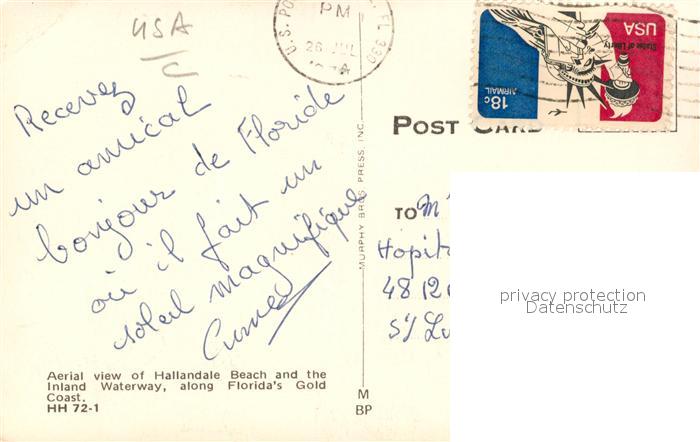 USA
C
U.S. PO
FL 330
PM
26 JUL
Recevez
un amical
bonjour de Floride
où il fait un
soleil magnifique
Aerial view of Hallandale Beach and the
Inland Waterway, along Florida's Gold
Coast.
HH 72-1
MURPHY BROS. PRESS, INC.
M
BP
USA
Statue of Liberty
18c
AIRMAIL
POST CARD
TO M
Hopit
48 12
S/ Lu
privacy protection
Datenschutz